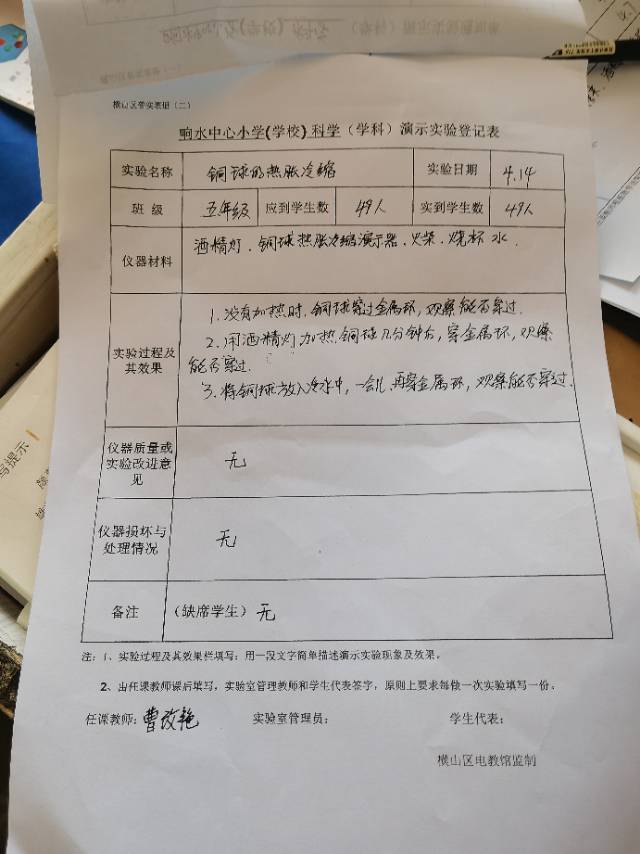 横山区教实表册（二）
响水中心小学(学校) 科学（学科）演示实验登记表
实验名称 铜球的热胀冷缩 实验日期 4.14
班 级 五年级 应到学生数 49人 实到学生数 49人
仪器材料 酒精灯．铜球热胀冷缩演示器．火柴．烧杯 水．
1. 没有加热时，铜球穿过金属环，观察能否穿过．
2. 用酒精灯加热铜球几分钟后，穿金属环，观察
实验过程及
其效果
能否穿过．
3. 将铜球放入冷水中，一会儿 再穿金属环，观察能否穿过．
仪器质量或
实验改进意
见
无
仪器损坏与
处理情况
无
备注 （缺席学生）无
注：1、实验过程及其效果栏填写：用一段文字简单描述演示实验现象及效果。
2、由任课教师课后填写，实验室管理教师和学生代表签字，原则上要求每做一次实验填写一份。
任课教师：曹改艳 实验室管理员： 学生代表：
横山区电教馆监制
写提示